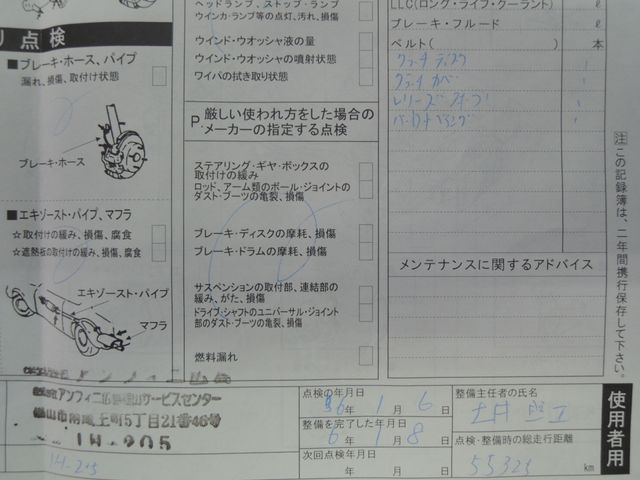 ヘッドランプ、ストップ・ランプ
ウインカ・ランプ等の点灯、汚れ、損傷
ウインド・ウオッシャ液の量
ウインド・ウオッシャの噴射状態
ワイパの拭き取り状態
P 厳しい使われ方をした場合の
メーカーの指定する点検
ステアリング・ギヤ・ボックスの
取付けの緩み
ロッド、アーム類のボール・ジョイントの
ダスト・ブーツの亀裂、損傷
ブレーキ・ディスクの摩耗、損傷
ブレーキ・ドラムの摩耗、損傷
サスペンションの取付部、連結部の
緩み、がた、損傷
ドライブ・シャフトのユニバーサル・ジョイント
部のダスト・ブーツの亀裂、損傷
燃料漏れ
り点検
■ブレーキ・ホース、パイプ
漏れ、損傷、取付け状態
ブレーキ・ホース
■エキゾースト・パイプ、マフラ
☆取付けの緩み、損傷、腐食
☆遮熱板の取付けの緩み、損傷、腐食
エキゾースト・パイプ
マフラ
LLC(ロング・ライフ・クーラント) ℓ
ブレーキ・フルード ℓ
ベルト( ) 本
クラッチディスク
クラッチカバー
メンテナンスに関するアドバイス
注この記録簿は、二年間携行保存して下さい。
サービスセンター
町5丁目21番46号
1H-205
点検の年月日
年 1月 6日
整備を完了した年月日
6年 1月 8日
次回点検年月日
年 月 日
整備主任者の氏名
点検・整備時の総走行距離
55323 km
使用者用